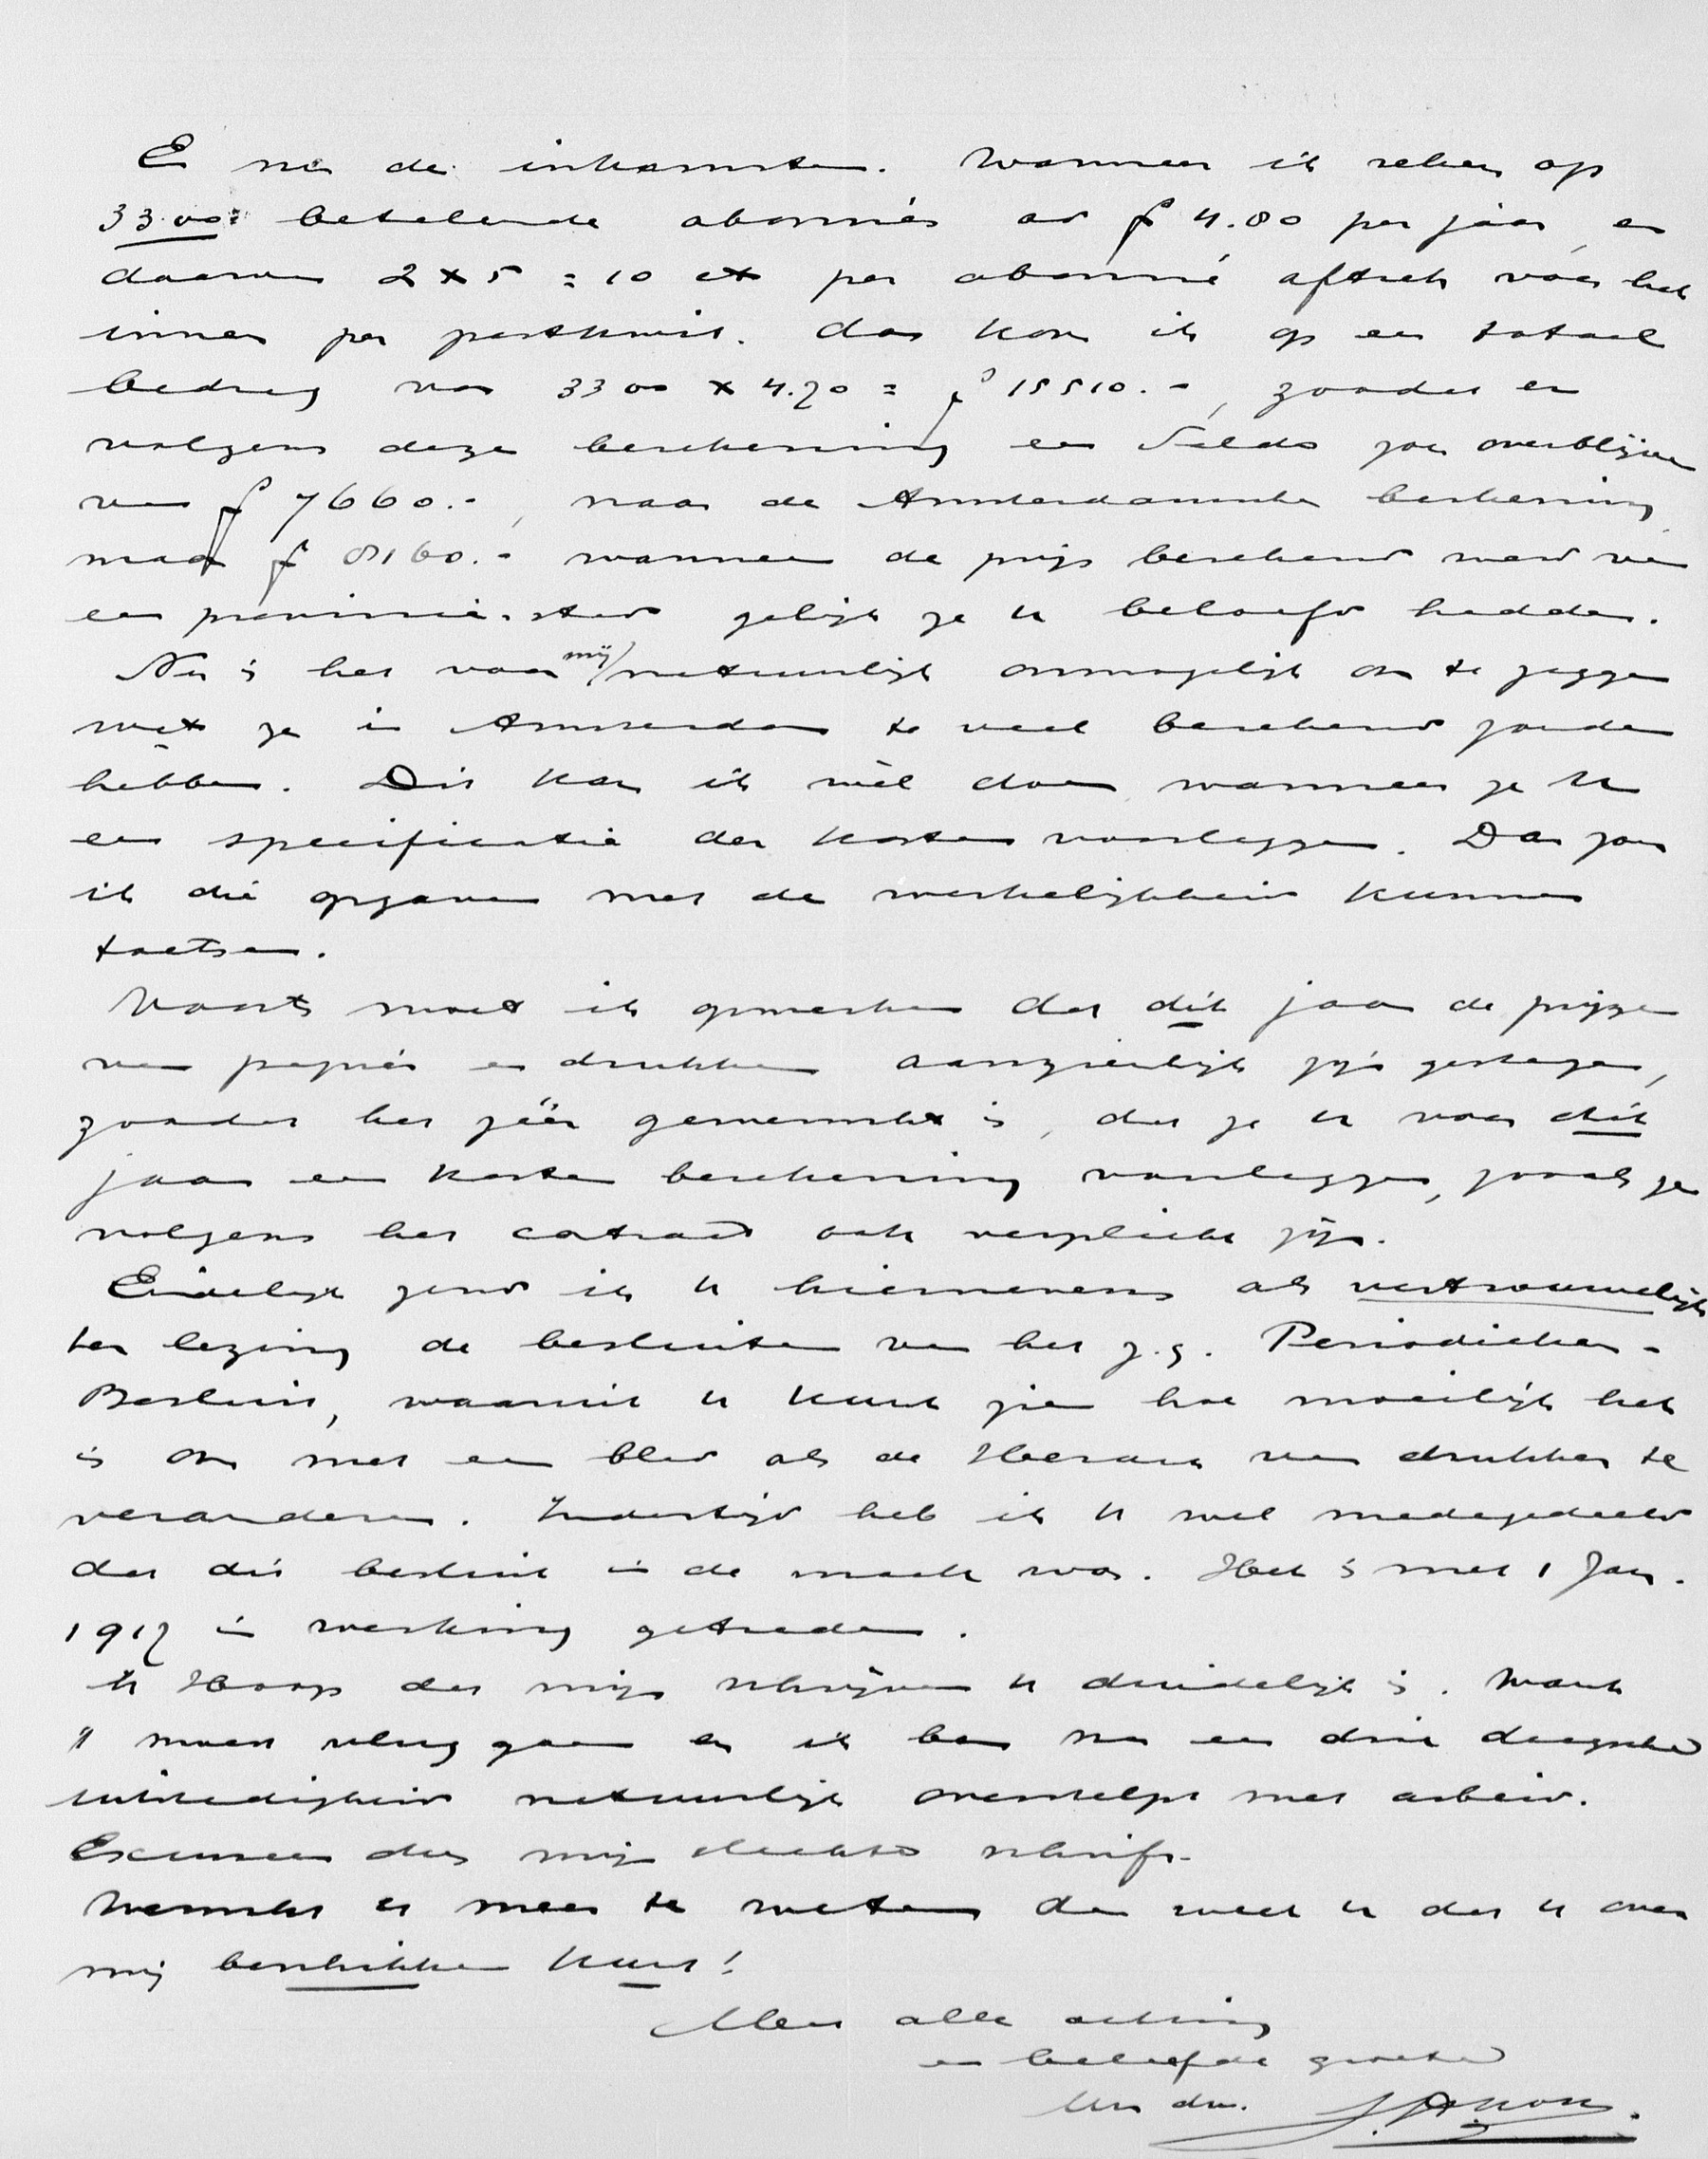 En nu de inkomsten. Wanneer ik reken op
3300 betalende abonnés ad f 4.80 per jaar en
daarvan 2 x 5 = 10 ct per abonné aftrek voor het
innen per postkwit. dan kom ik op een totaal
bedrag van 3300 x 4.70 = f 15510.-, zoodat er
volgens deze berekening een Saldo zou overblijven
van f 7660.-, naar de Amsterdamsche berekening
maar f 8160.- wanneer de prijs berekend werd van
een provincie-stad gelijk ze u beloofd hadden.
Nu is het voor mij natuurlijk onmogelijk om te zeggen
wat ze in Amsterdam te veel berekend zouden
hebben. Dit kan ik wèl doen wanneer ze U
een specificatie der kosten voorleggen. Dan zou
ik die opgaven met de werkelijkheid kunnen
toetsen.
Voorts moet ik opmerken dat dit jaar de prijzen
van papier en drukken aanzienlijk zijn gestegen,
zoodat het zéér gewenscht is, dat ze U voor dit
jaar een kosten berekening voorleggen, zooals ze
volgens het contract ook verplicht zijn.
Eindelijk zend ik U hiernevens als vertrouwelijk
ter lezing de besluiten van het z.g. Periodieken-
Besluit, waaruit U kunt zien hoe moeilijk het
is om met een blad als de Heraut van drukker te
veranderen. Indertijd heb ik U wel medegedeeld
dat dit besluit in de maak was. Het is met 1 Jan.
1917 in werking getreden.
Ik Hoop dat mijn schrijven U duidelijk is. Want
't moest vlug gaan en ik ben na een drie daagsche
uitstedigheid natuurlijk overstelpt met arbeid.
Excuseer dus mijn slechte schrift.
Wenscht U meer te weten dan weet U dat U over
mij beschikken kunt!
Met alle achting
en beleefde groeten
Uw dw.